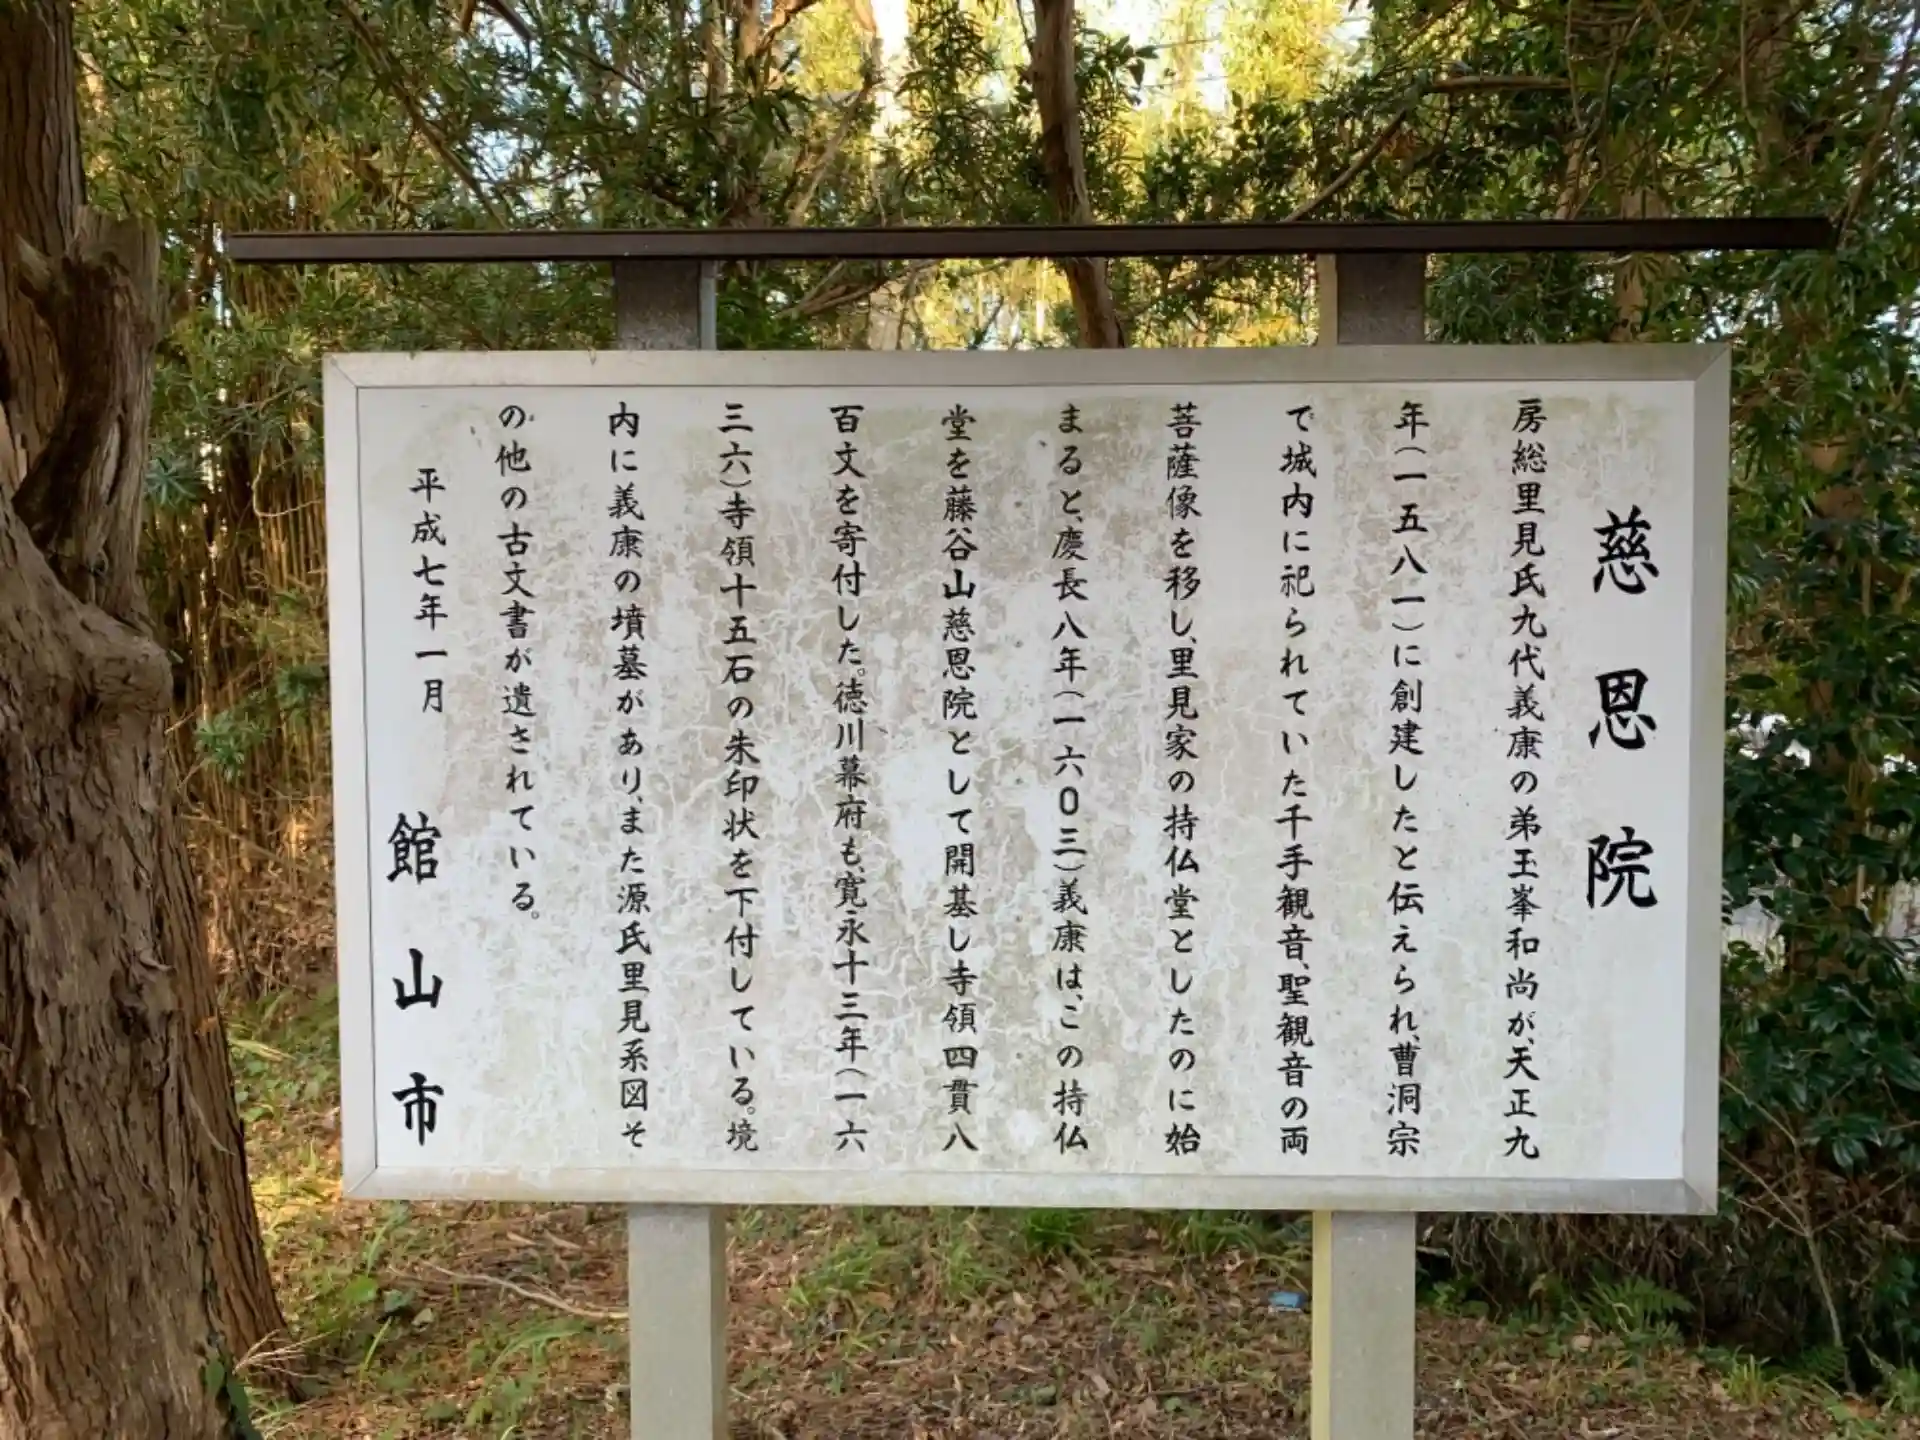 慈恩院
房総里見氏九代義康の弟玉峯和尚が、天正九
年(一五八一)に創建したと伝えられ、曹洞宗
で城内に祀られていた千手観音、聖観音の両
菩薩像を移し、里見家の持仏堂としたのに始
まると、慶長八年(一六０三)義康は、この持仏
堂を藤谷山慈恩院として開基し寺領四貫八
百文を寄付した。徳川幕府も、寛永十三年(一六
三六)寺領十五石の朱印状を下付している。境
内に義康の墳墓があり、また源氏里見系図そ
の他の古文書が遺されている。
平成七年一月
館山市